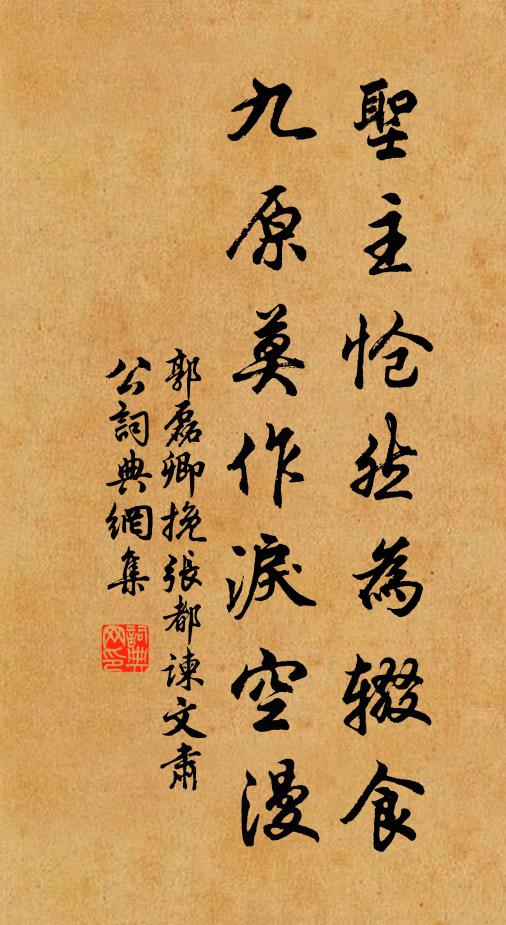 聖主愴然為辍食
九原莫作淚空漫
郭磊卿挽張都諫文肅
公詞典網集
詞典网印